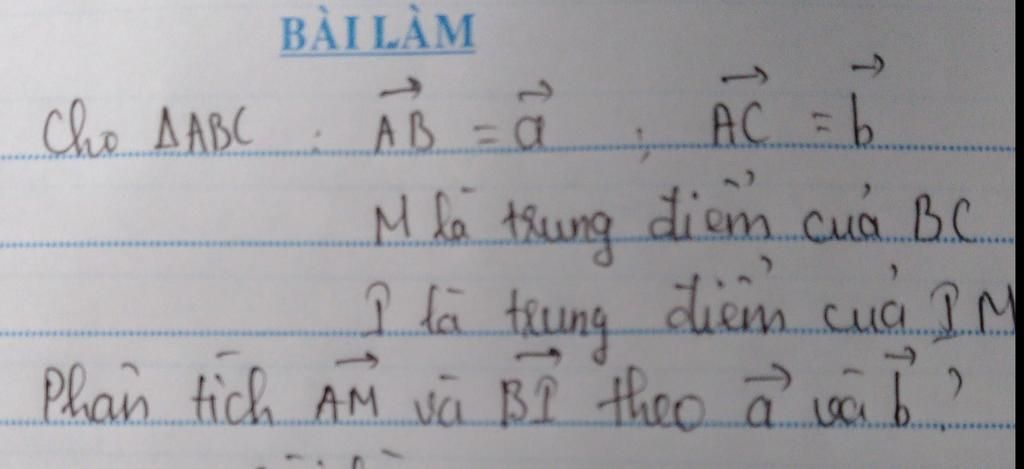 BÀI LÀM
Cho ΔABC : \overrightarrow{AB} = \vec{a} ; \overrightarrow{AC} = \vec{b}
M là trung điểm của BC
I là trung điểm của IM
Phân tích \overrightarrow{AM} và \overrightarrow{BI} theo \vec{a} và \vec{b} ?